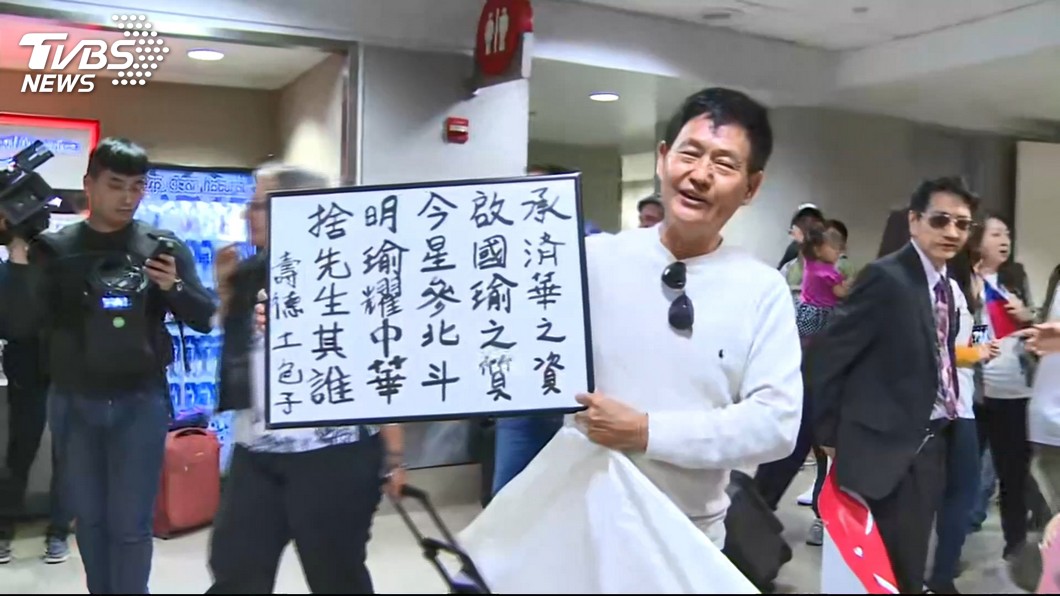 TVBS
NEWS
承済華之資
啟國瑜之質
今星參北斗
明瑜耀中華
捨先生其誰
壽德土包子